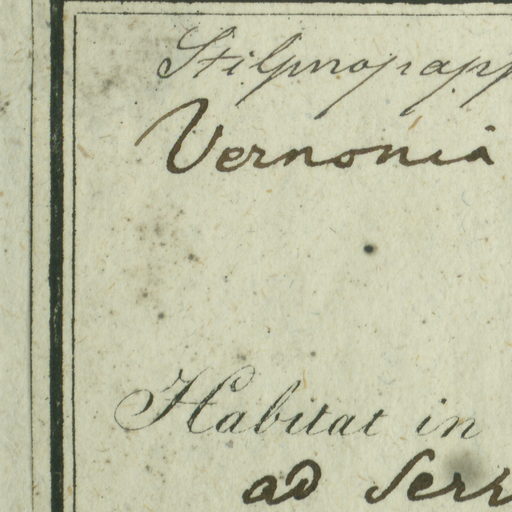 Stilpnopapp
Vernonia
Habitat in
ad Serr